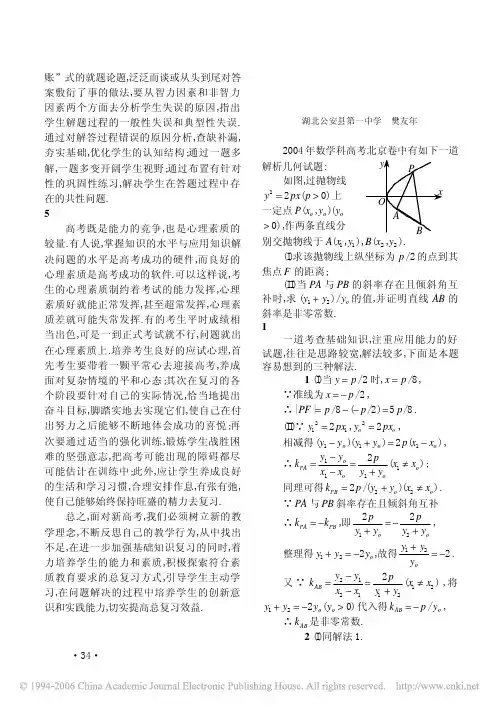 账”式的就题论题,泛泛而谈或从头到尾对答
案敷衍了事的做法,要从智力因素和非智力
因素两个方面去分析学生失误的原因,指出
学生解题过程的一般性失误和典型性失误.
通过对解答过程错误的原因分析,查缺补漏,
夯实基础,优化学生的认知结构;通过一题多
解,一题多变开阔学生视野;通过布置有针对
性的巩固性练习,解决学生在答题过程中存
在的共性问题.
5
高考既是能力的竞争,也是心理素质的
较量.有人说,掌握知识的水平与应用知识解
决问题的水平是高考成功的硬件,而良好的
心理素质是高考成功的软件.可以这样说,考
生的心理素质制约着考试的能力发挥,心理
素质好就能正常发挥,甚至超常发挥,心理素
质差就可能失常发挥.有的考生平时成绩相
当出色,可是一到正式考试就不行,问题就出
在心理素质上.培养考生良好的应试心理,首
先考生要带着一颗平常心去迎接高考,养成
面对复杂情境的平和心态;其次在复习的各
个阶段要针对自己的实际情况,恰当地提出
奋斗目标,脚踏实地去实现它们,使自己在付
出努力之后能够不断地体会成功的喜悦;再
次要通过适当的强化训练,锻炼学生战胜困
难的坚强意志,把高考可能出现的障碍都尽
可能估计在训练中;此外,应让学生养成良好
的生活和学习习惯,合理安排作息,有张有弛,
使自己能够始终保持旺盛的精力去复习.
总之,面对新高考,我们必须树立新的教
学理念,不断反思自己的教学行为,从中找出
不足,在进一步加强基础知识复习的同时,着
力培养学生的能力和素质,积极探索符合素
质教育要求的总复习方式,引导学生主动学
习,在问题解决的过程中培养学生的创新意
识和实践能力,切实提高总复习效益.
·34·
湖北公安县第一中学 樊友年
2004年数学科高考北京卷中有如下一道
解析几何试题:
如图,过抛物线
y²=2px(p>0)上
一定点P(x₀,y₀)(y₀
>0),作两条直线分
别交抛物线于A(x₁,y₁),B(x₂,y₂).
y
P
x
O
A
B
(Ⅰ)求该抛物线上纵坐标为p/2的点到其
焦点F的距离;
(Ⅱ)当PA与PB的斜率存在且倾斜角互
补时,求(y₁+y₂)/y₀的值,并证明直线AB的
斜率是非零常数.
1
一道考查基础知识,注重应用能力的好
试题,往往是思路较宽,解法较多,下面是本题
容易想到的三种解法.
1 (Ⅰ)当y=p/2时,x=p/8,
∵准线为x=−p/2,
∴|PF|=p/8−(−p/2)=5p/8.
(Ⅱ)∵ y₁²=2px₁,y₀²=2px₀,
相减得(y₁−y₀)(y₁+y₀)=2p(x₁−x₀),
∴k_PA=(y₁−y₀)/(x₁−x₀)=2p/(y₁+y₀)(x₁≠x₀);
同理可得k_PB=2p/(y₂+y₀)(x₂≠x₀).
∵PA与PB斜率存在且倾斜角互补
∴k_PA=−k_PB,即2p/(y₁+y₀)=−2p/(y₂+y₀),
整理得y₁+y₂=−2y₀,故得(y₁+y₂)/y₀=−2.
又∵k_AB=(y₂−y₁)/(x₂−x₁)=2p/(y₁+y₂)(x₁≠x₂),将
y₁+y₂=−2y₀(y₀>0)代入得k_AB=−p/y₀,
∴k_AB是非零常数.
2 (Ⅰ)同解法1.
© 1994-2006 China Academic Journal Electronic Publishing House. All rights reserved. http://www.cnki.net